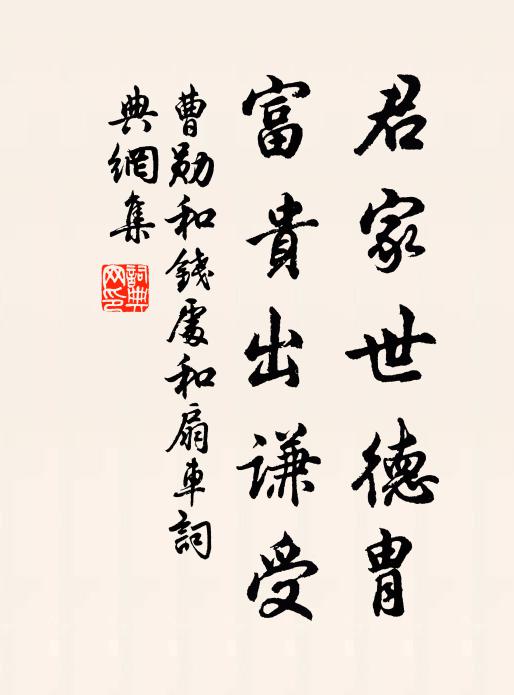 君家世德胄
富貴出謙受
曹勛和錢處和扇車詞
典網集
詞典网印